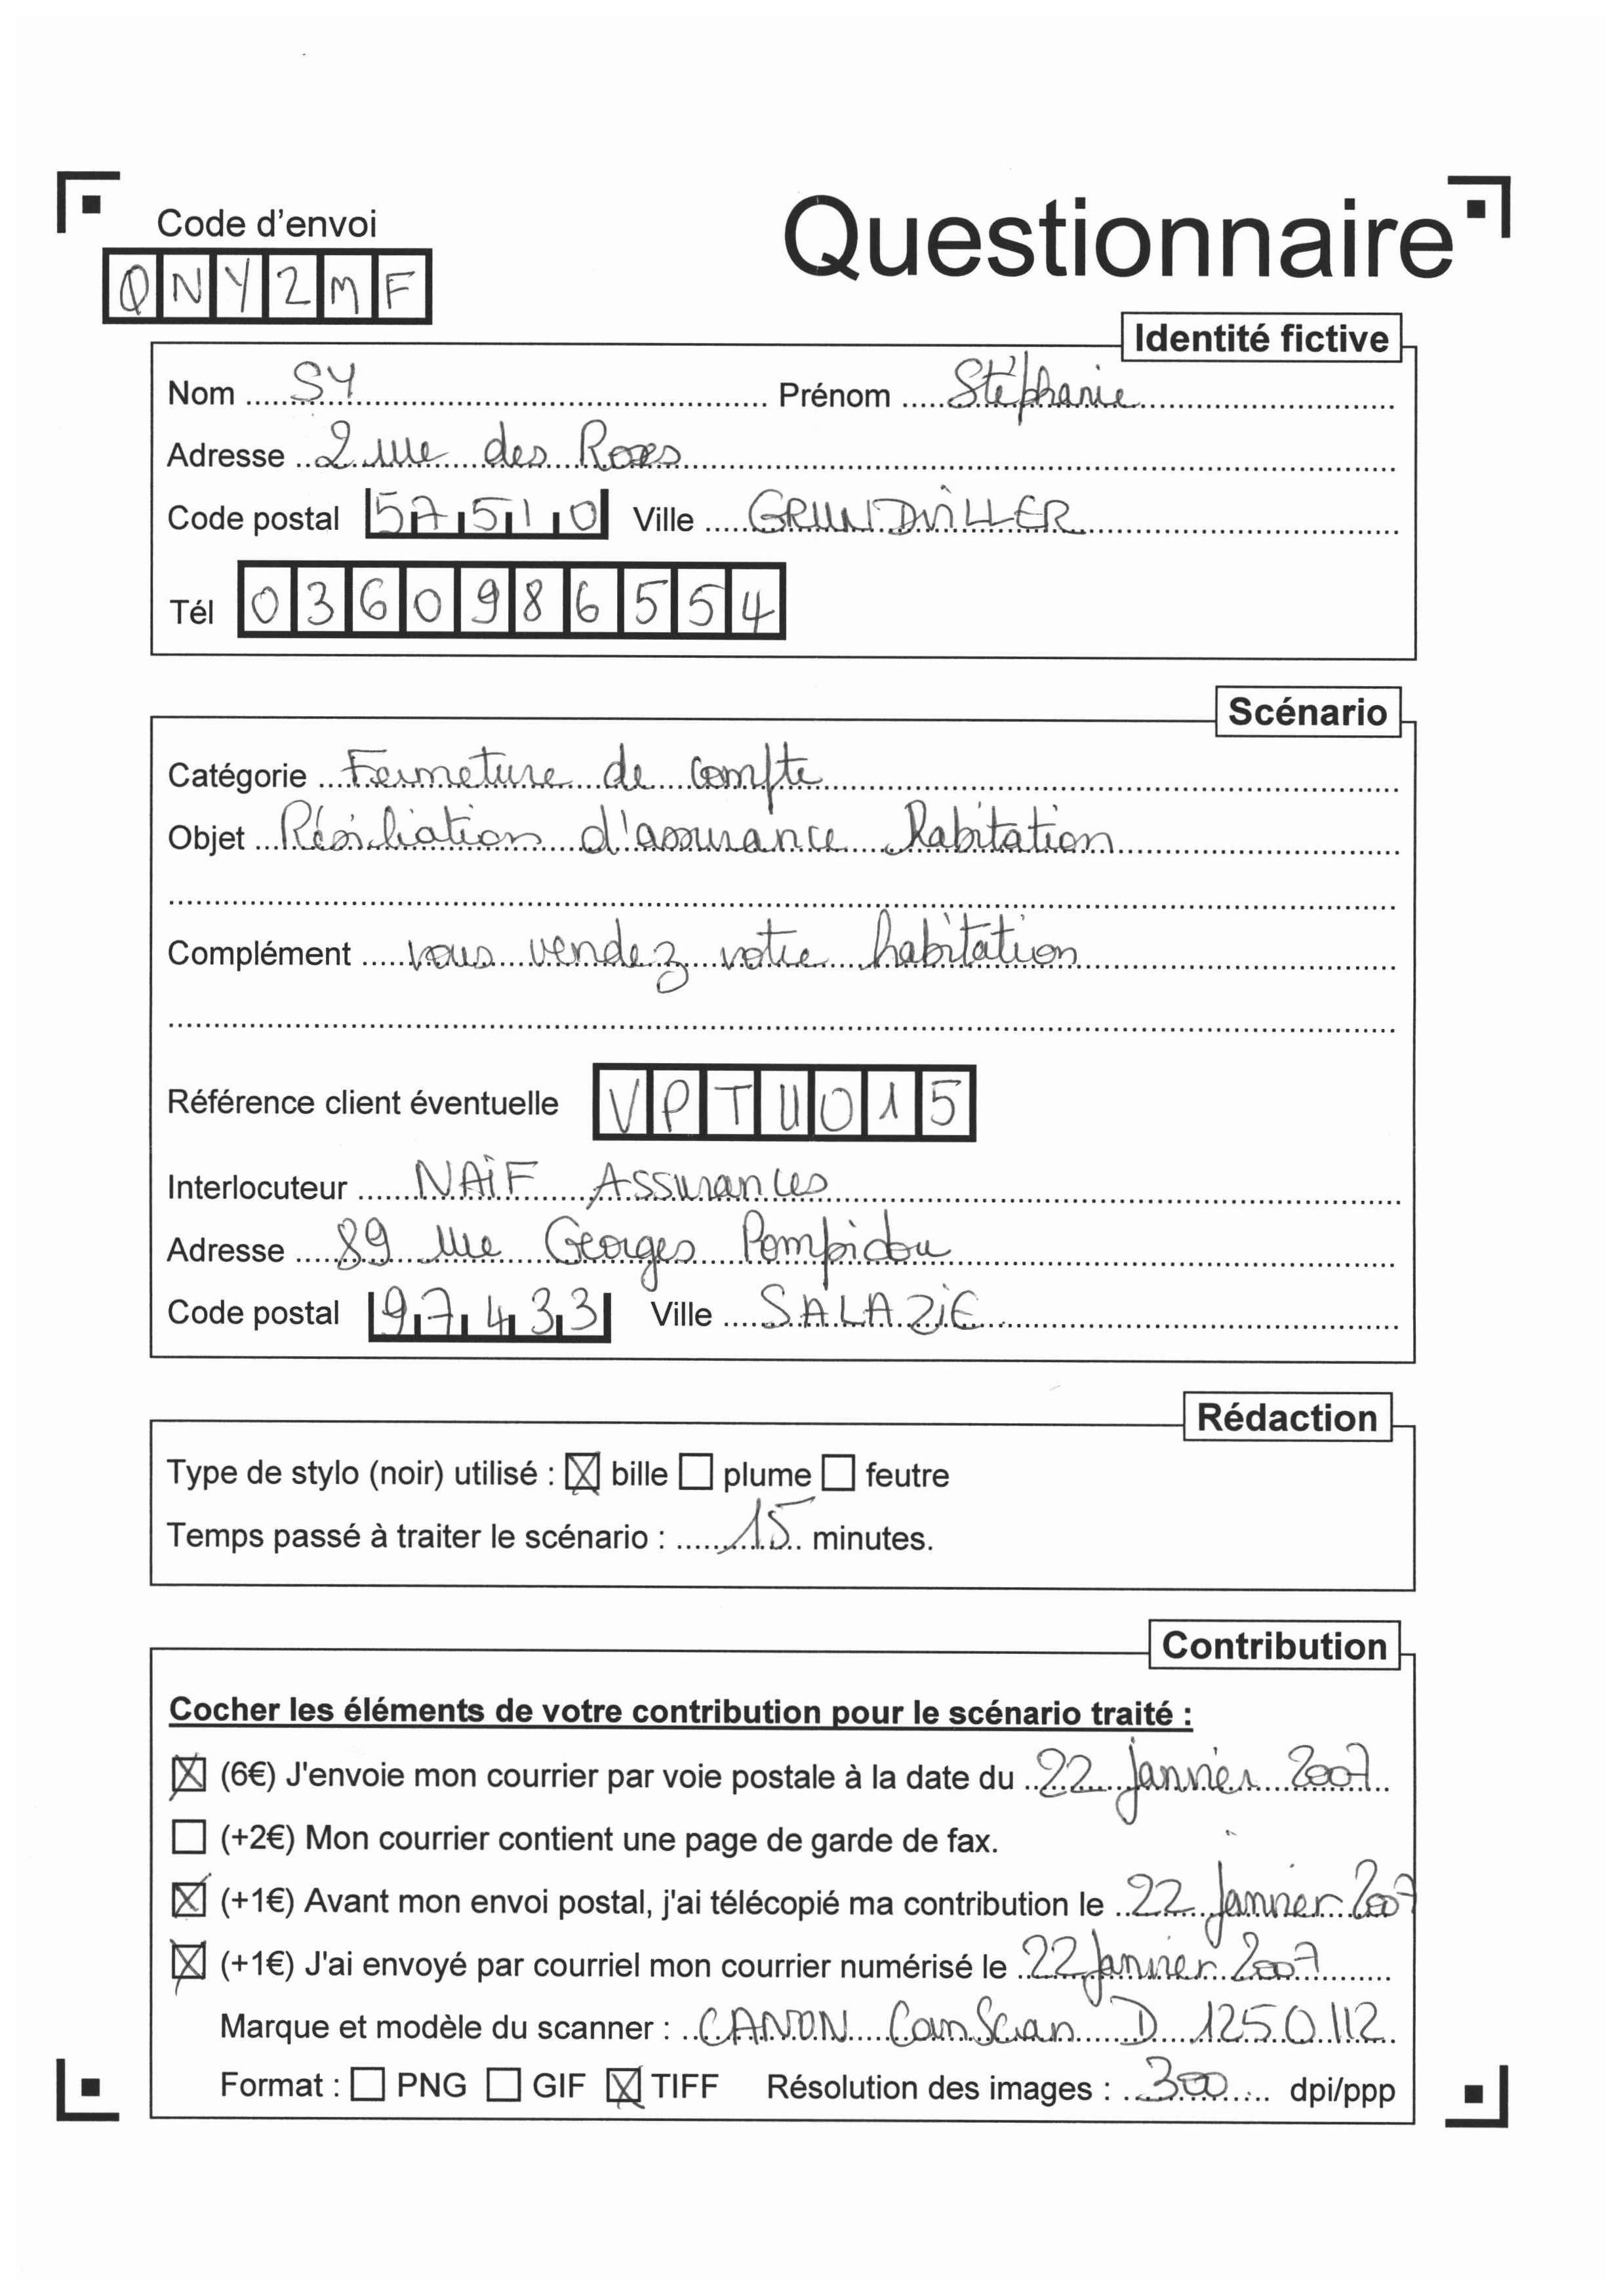 Code d'envoi
Questionnaire
QNY2MF
Identité fictive
Nom SY Prénom Stéphanie
Adresse 2 rue des Roses
Code postal 57510 Ville GRUNDVILLER
Tél 0360986554
Scénario
Catégorie Fermeture de compte
Objet Résiliation d'assurance habitation
Complément vous vendez votre habitation
Référence client éventuelle VPTU015
Interlocuteur NAIF Assurances
Adresse 89 rue Georges Pompidou
Code postal 97433 Ville SALAZIE
Rédaction
Type de stylo (noir) utilisé : ☒ bille ☐ plume ☐ feutre
Temps passé à traiter le scénario : 15 minutes.
Contribution
Cocher les éléments de votre contribution pour le scénario traité :
☒ (6€) J'envoie mon courrier par voie postale à la date du 22 janvier 2007
☐ (+2€) Mon courrier contient une page de garde de fax.
☒ (+1€) Avant mon envoi postal, j'ai télécopié ma contribution le 22 janvier 2007
☒ (+1€) J'ai envoyé par courriel mon courrier numérisé le 22 janvier 2007
Marque et modèle du scanner : CANON CanScan D 1250 U2
Format : ☐ PNG ☐ GIF ☒ TIFF Résolution des images : 300 dpi/ppp